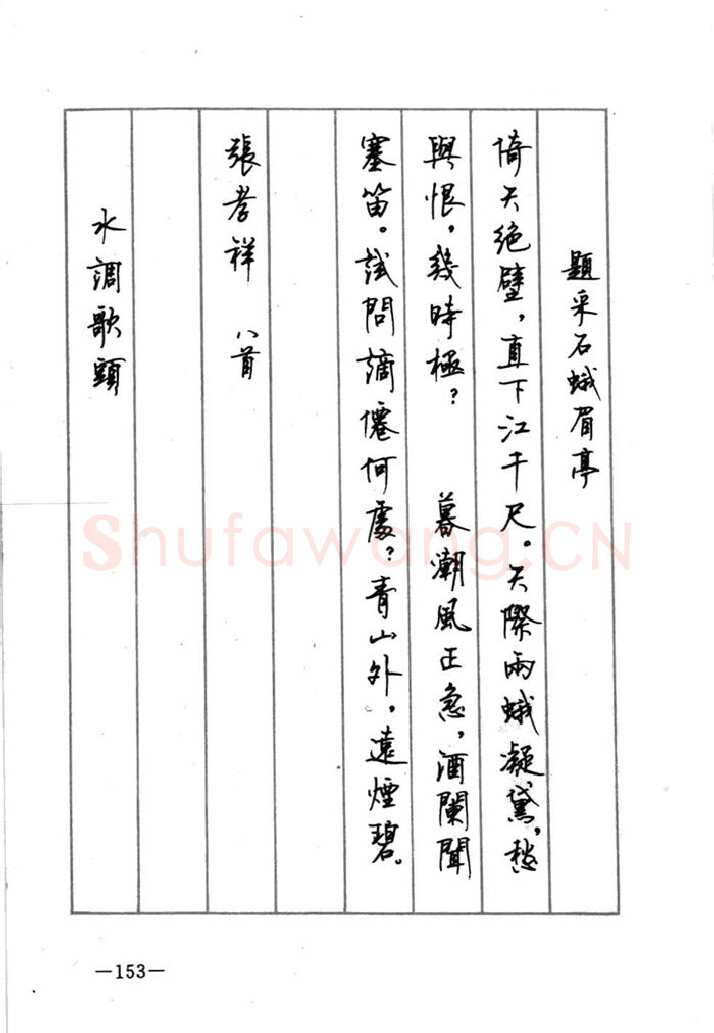 題采石蛾眉亭
倚天绝壁，直下江千尺。天際兩蛾凝黛，愁
與恨，幾時極？　　暮潮風正急，酒闌聞
塞笛。試問謫僊何處？青山外，遠煙碧。
張孝祥　八首
水調歌頭
Shufawang.CN
—153—